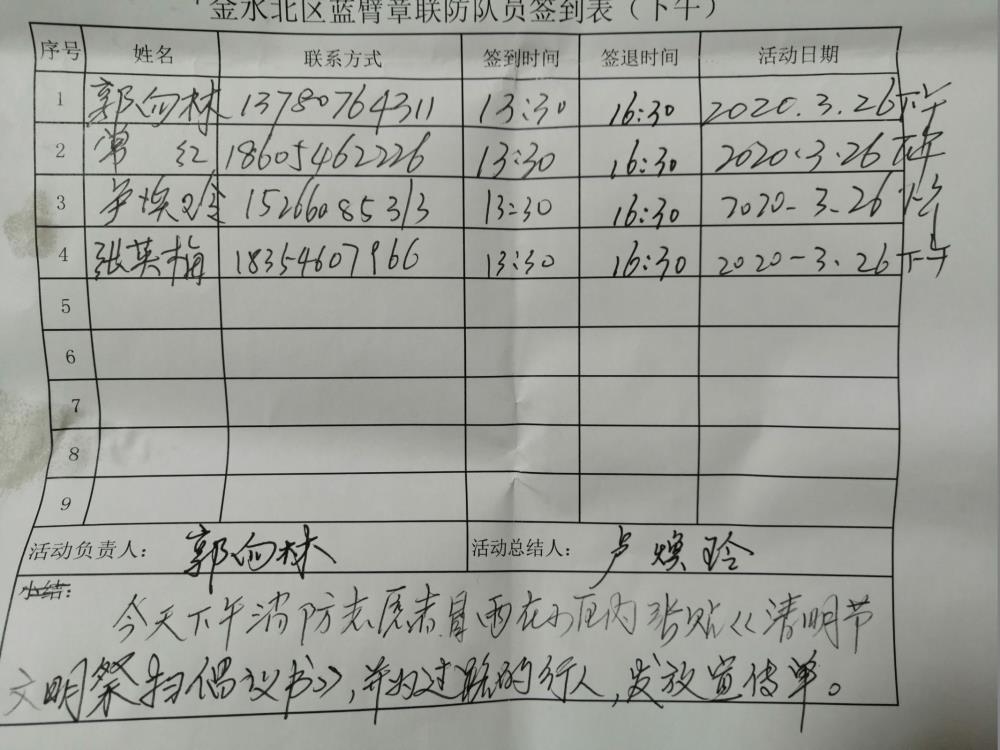 金水北区蓝臂章联防队员签到表（下午）
序号 姓名 联系方式 签到时间 签退时间 活动日期
1 郭向林 13780764311 13:30 16:30 2020.3.26下午
2 常红 18605462226 13:30 16:30 2020.3.26下午
3 卢焕玲 15266085313 13:30 16:30 2020-3.26下午
4 张英梅 18354607966 13:30 16:30 2020-3.26下午
5
6
7
8
9
活动负责人： 郭向林 活动总结人： 卢焕玲
小结：
今天下午消防志愿者冒雨在小区内张贴《清明节
文明祭扫倡议书》，并为过路的行人，发放宣传单。